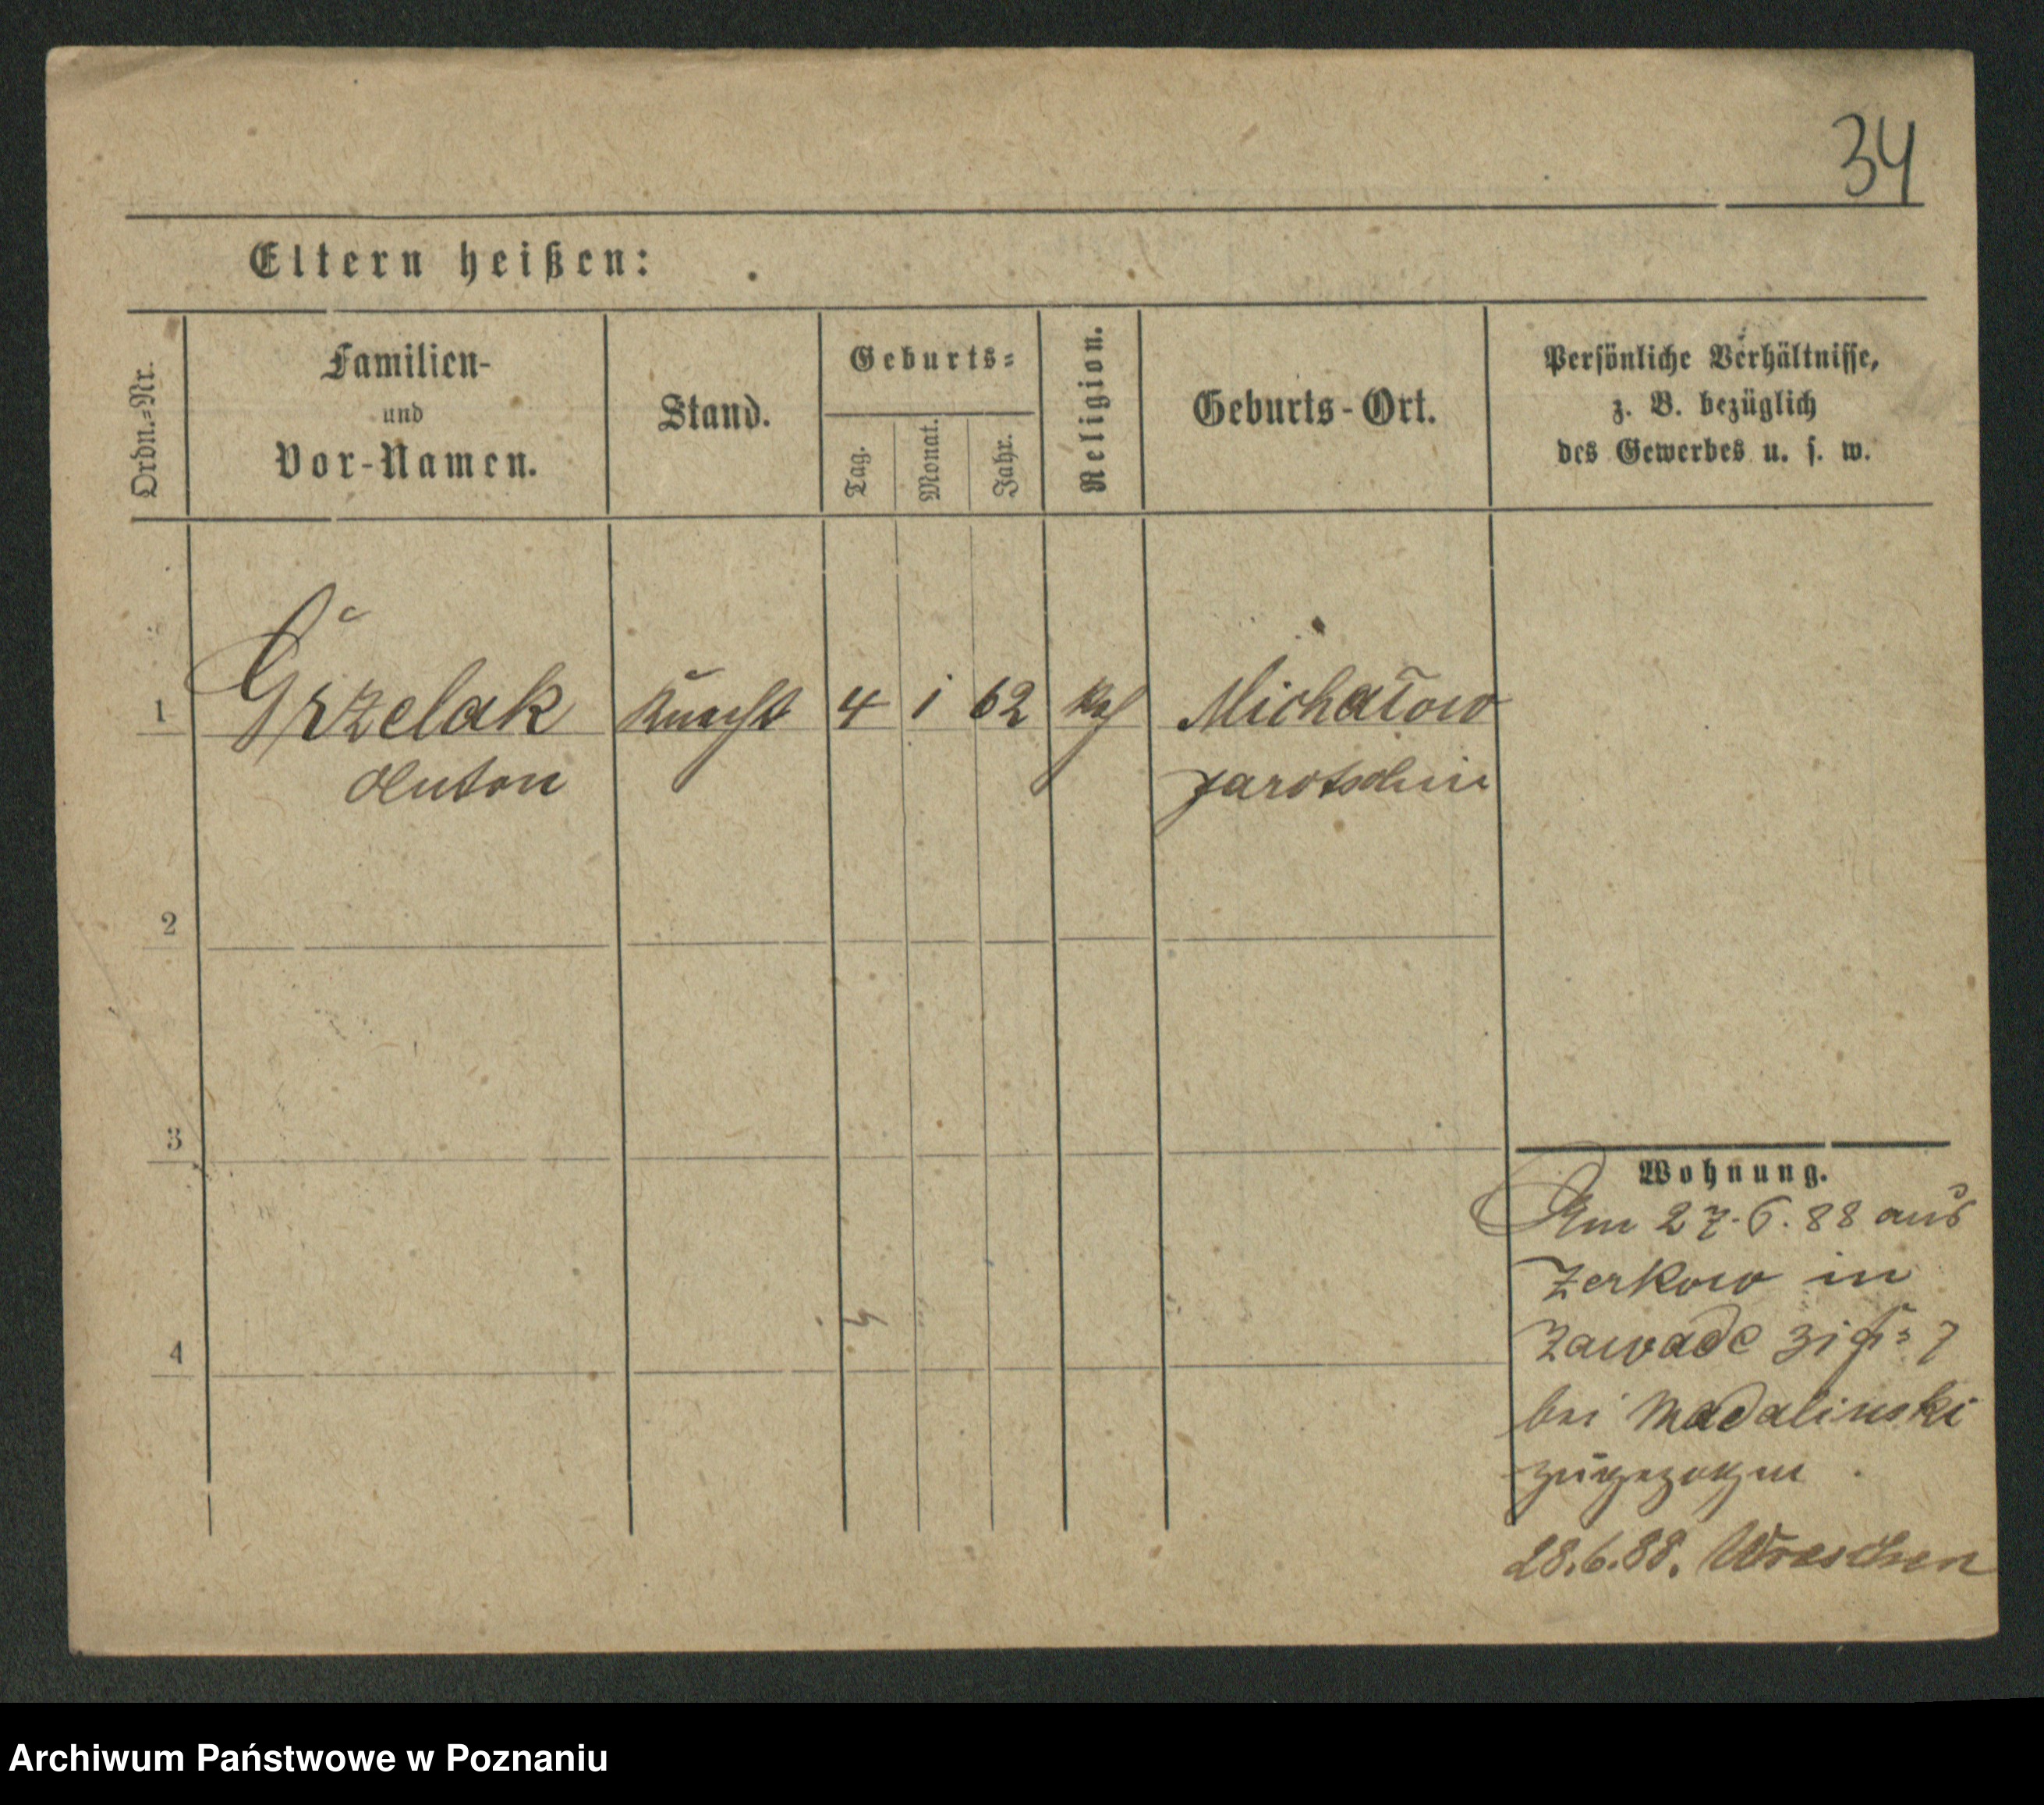 34
Eltern heißen:
Ordn.-Nr.
Familien-
und
Vor-Namen.
Stand.
Geburts-
Tag.
Monat.
Jahr.
Religion.
Geburts-Ort.
Persönliche Verhältnisse,
z. B. bezüglich
des Gewerbes u. s. w.
1 Grzelak Knecht 4 1 62 kath Michałow
Anton Jarotschin
2
3
4
Wohnung.
Am 27.6.88 aus
Zerkow in
Zawade
bei Madalinski
zugezogen.
28.6.88. Wreschen
Archiwum Państwowe w Poznaniu